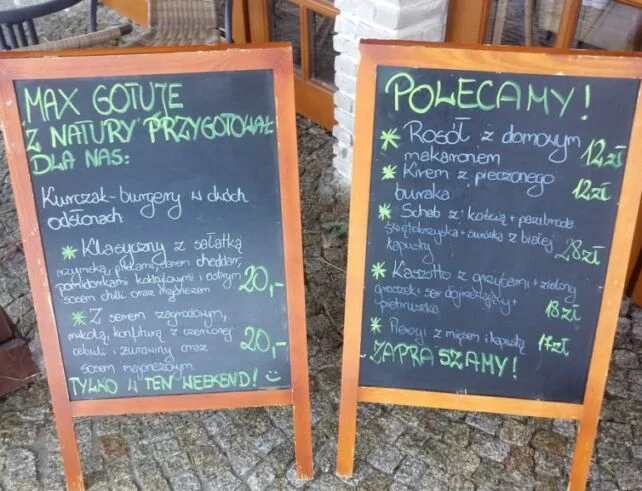 MAX GOTUJE
"Z NATURY" PRZYGOTOWAŁ
DLA NAS:
Kurczak-burgery w dwóch
odsłonach
* Klasyczny z sałatką
rzymską, piklami, serem cheddar,
pomidorkami koktajlowymi i ostrym
sosem chilli oraz majonezem 20,-
* Z serem zagrodowym,
rukolą, konfiturą z czerwonej
cebuli i żurawiny oraz 20,-
sosem majonezowym.
TYLKO W TEN WEEKEND!
POLECAMY!
* Rosół z domowym
makaronem 12zł
* Krem z pieczonego
buraka 12zł
* Schab z kością + pazibroda
świętokrzyska + surówka z białej
kapusty 28zł
* Kaszotto z grzybami + zielony
groszek + ser dojrzewający +
pietruszka 18zł
* Pierogi z mięsem i kapustą 17zł
ZAPRASZAMY!